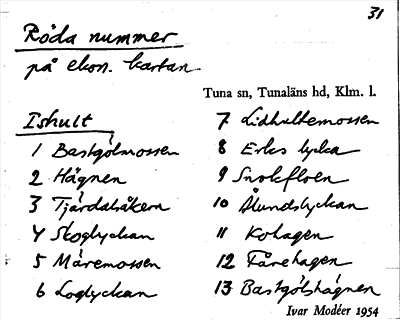 31
Röda nummer
på ekon. kartan
Tuna sn, Tunaläns hd, Klm. l.
Ishult
1 Bastgölmossen
2 Hägnen
3 Tjärdalsåkern
4 Skoglyckan
5 Måremossen
6 Loglyckan
7 Lidhultemossen
8 Erks lycka
9 Snokfloen
10 Ålundslyckan
11 Kohagen
12 Fårehagen
13 Bastgölshägnen
Ivar Modéer 1954